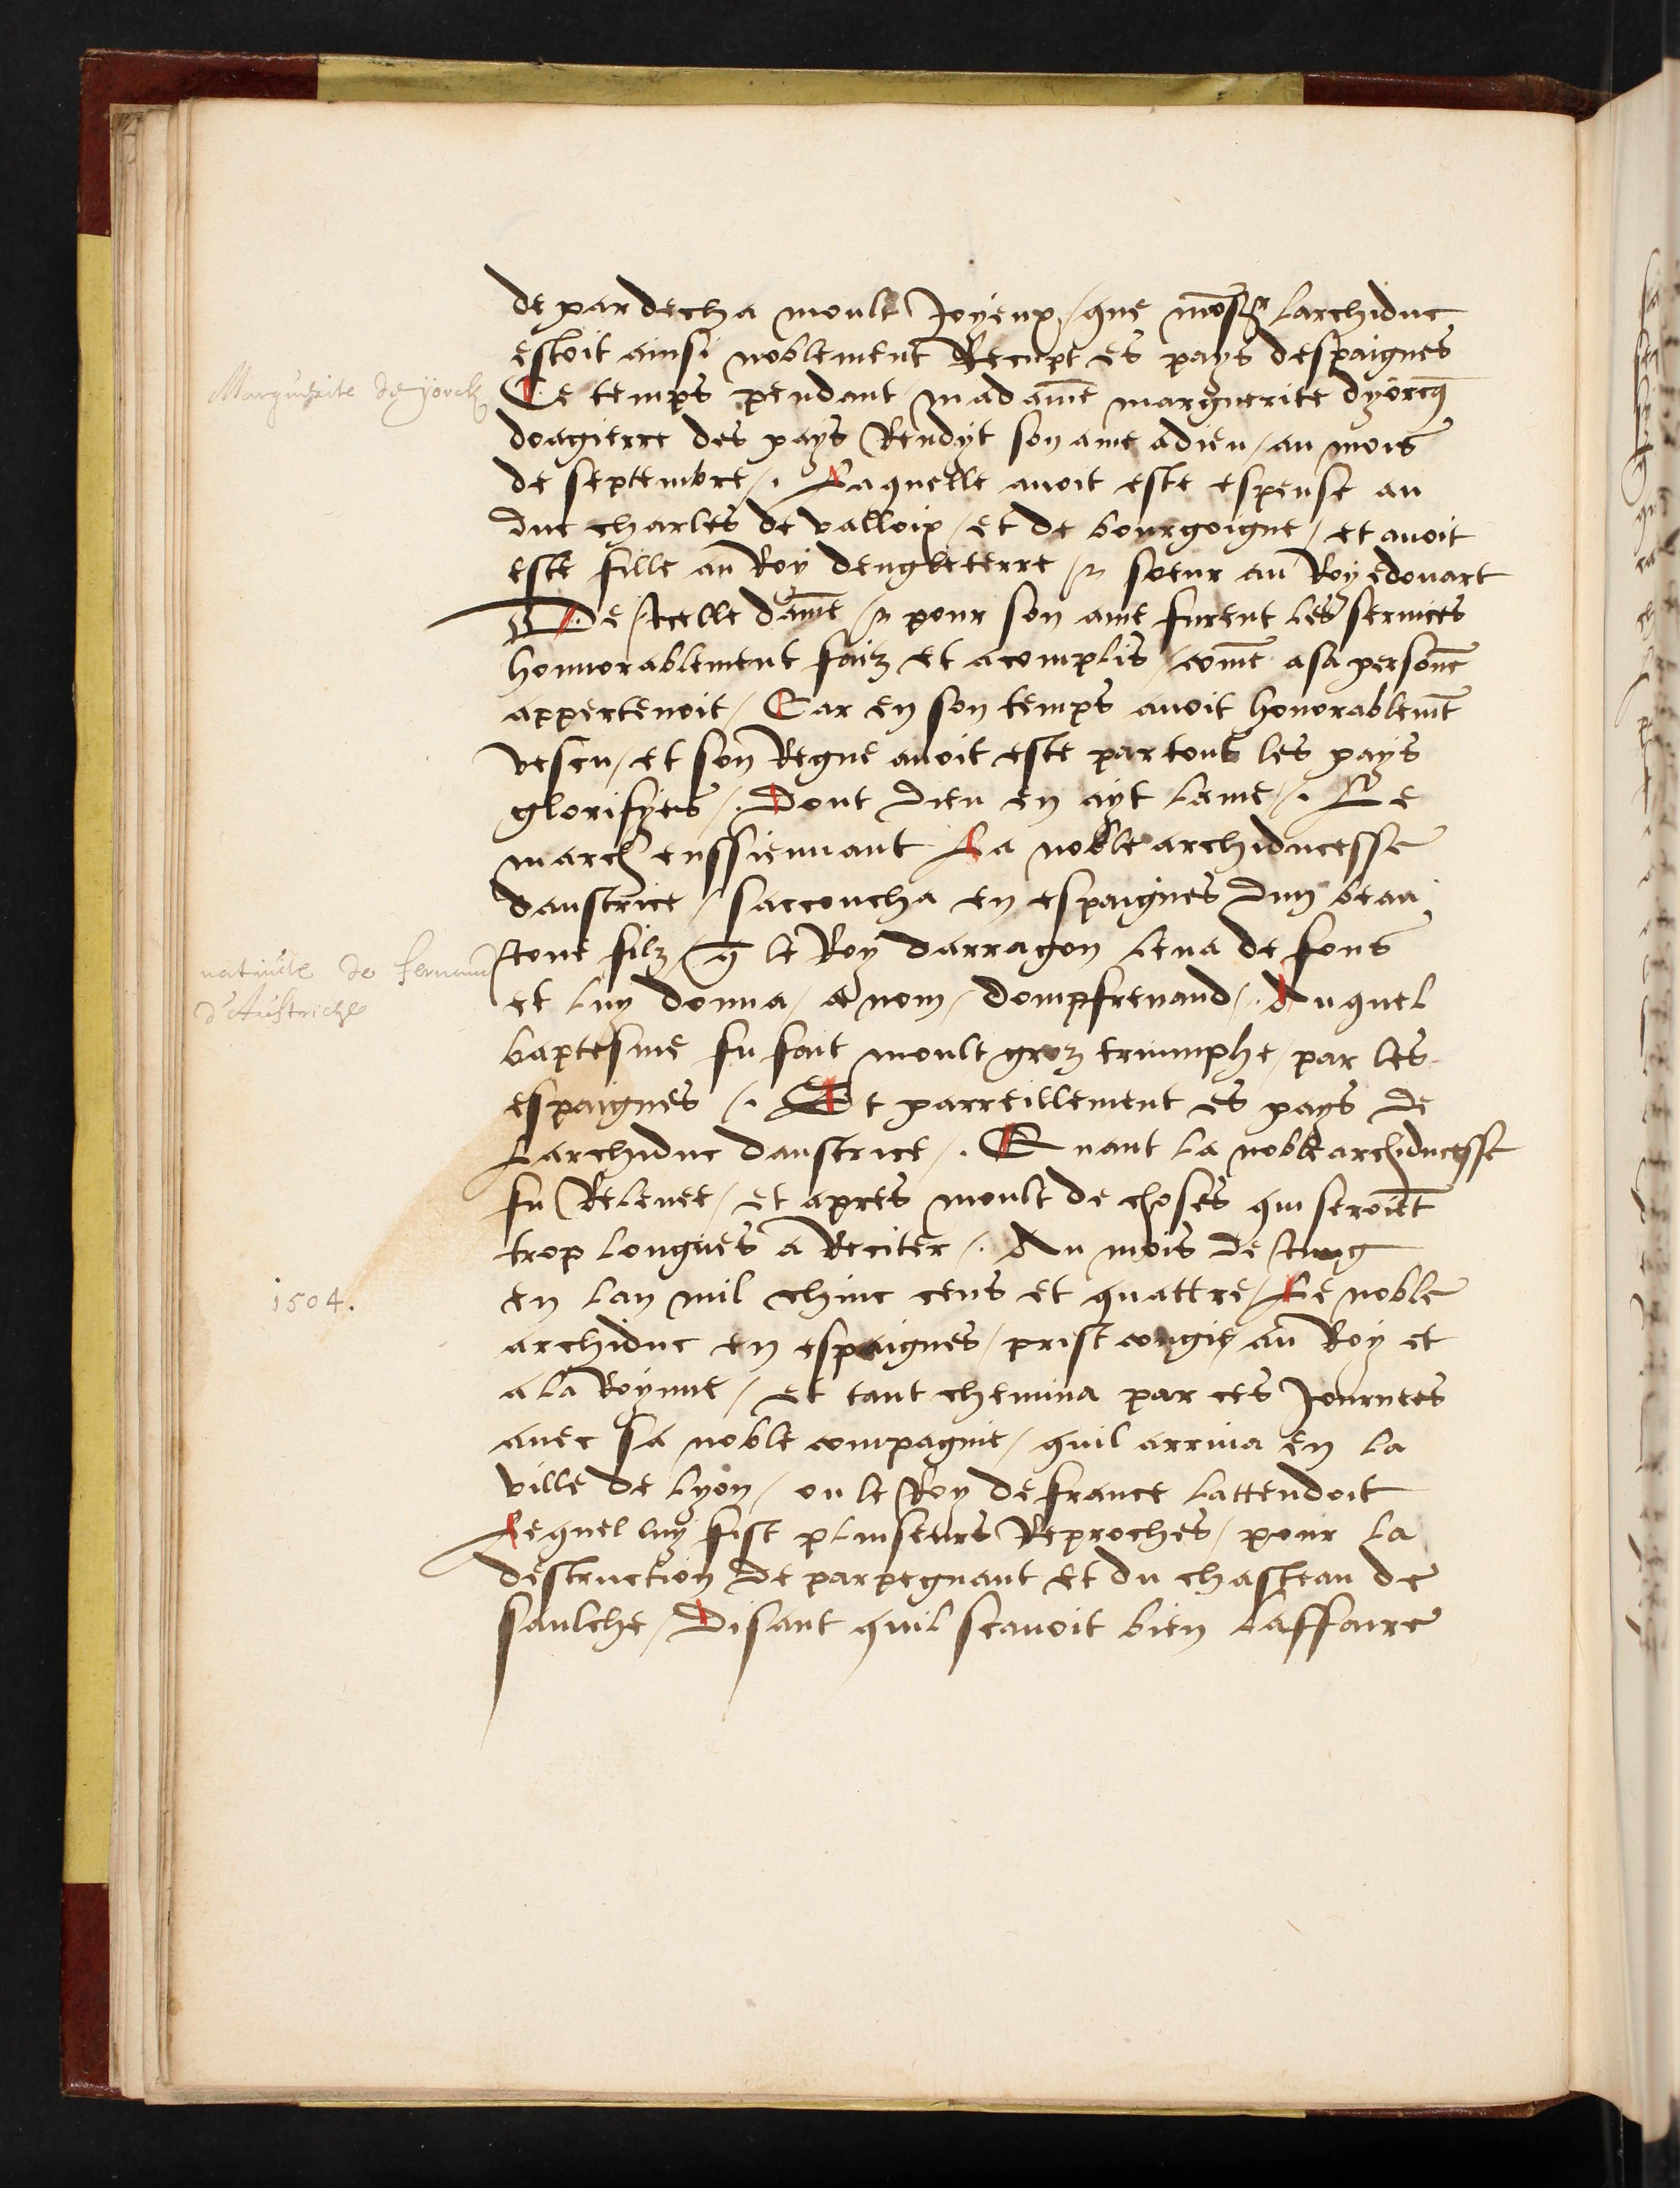 de par decha moult Joyeux / que mōsr larchiduc
estoit ainsi noblement Recupt es pays despaignes
Marguerite de yorck
Ce temps pendant / madame marguerite dyorcq
doagierre des pays Rendyt son ame adieu / au mois
de septembre /. Laquelle auoit este espeuse au
duc charles de valloix / et de bourgoigne / et auoit
este fille au Roy dengleterre / et soeur au Roy edouart
De Icelle dame / et pour son ame furent les seruices
honnorablement faiz et acomplis / come asa persone
appertenoit / Car en son temps auoit honorablemt
vescu / et son Regne auoit este par tous les pays
glorifyes /. Dont dieu en ayt lame /. Le
march enssieuuant La noble archiducesse
daustrice / saccoucha en espaignes dun beau
natiuite de fernand
d'Austriche
Jone filz / q le Roy darragon leua de fons
et luy donna / a nom / dompfrenand /. Auquel
baptesme fu fait moult groz triumphe / par les
espaignes /. Et parreillement es pays de
Larchiduc daustrice /. Quant la noble archiducesse
fu Releuee / et apres moult de choses qui seroiēt
trop longues a Reciter /. Au mois de Jung
1504.
en lan mil chinc cens et quattre / Le noble
archiduc en espaignes / prist congie au Roy et
a la Roynne / et tant chemina par ces Journees
auec sa noble compagnie / quil arriua en la
ville de lyon / ou le Roy de france lattendoit
Lequel luy fist pluiseurs Reproches / pour la
destruction de parpegnant et du chasteau de
saulche / Disant quil scauoit bien laffaire